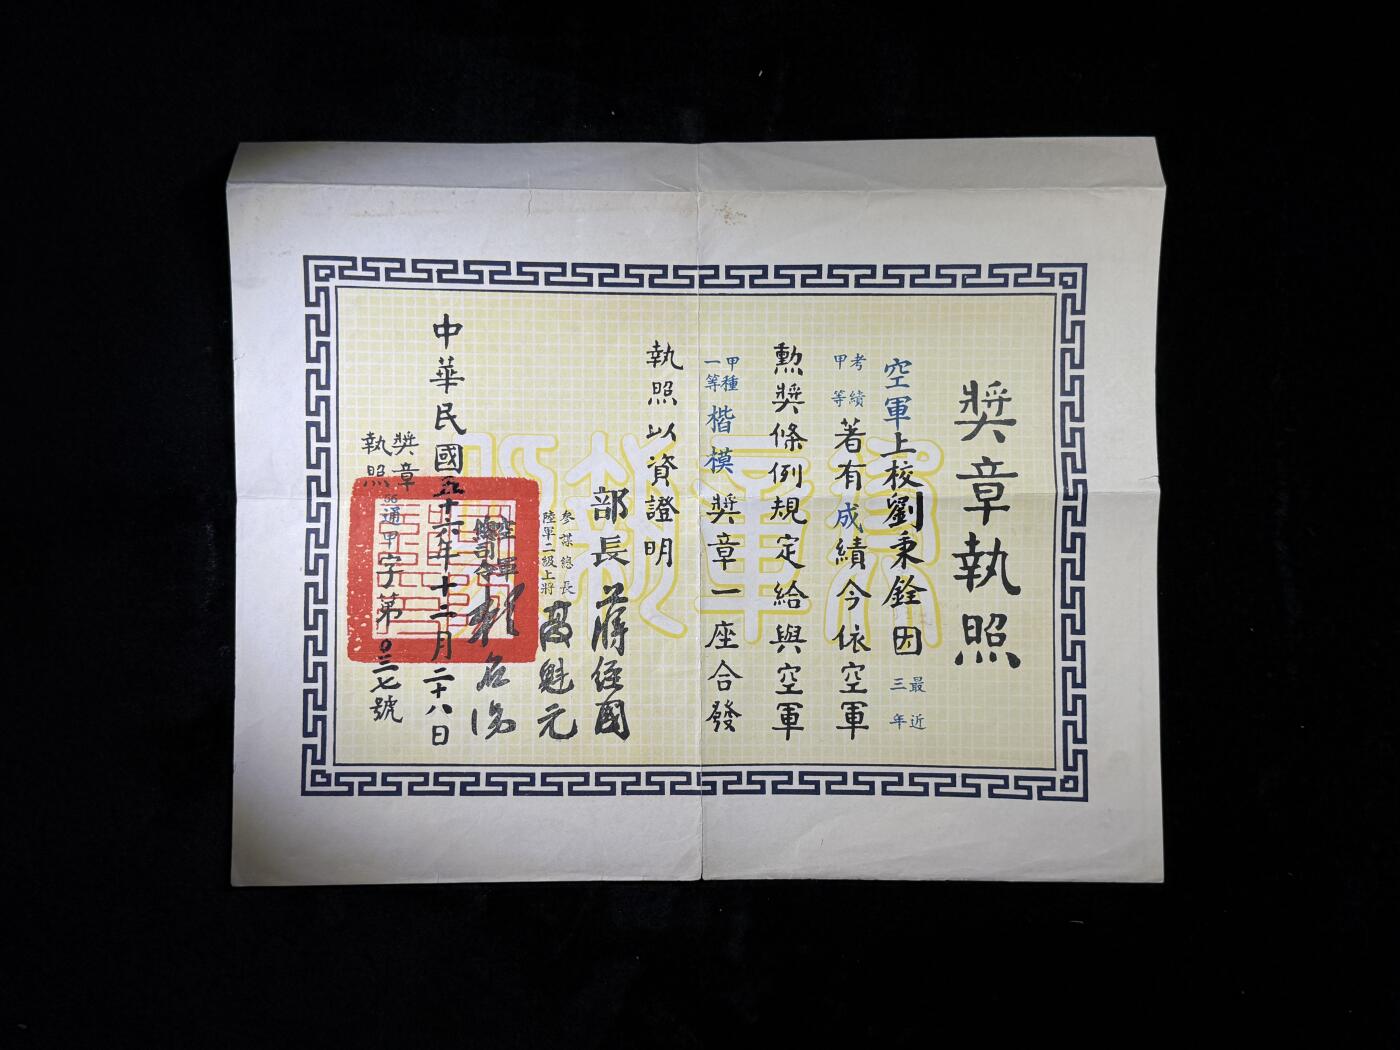 獎章執照
空軍上校劉秉銓因最近三年
考績甲等著有成績今依空軍
勲獎條例規定給與空軍
甲種一等楷模獎章一座合發
執照以資證明
部長蔣經國
參謀總長
陸軍二級上將
高魁元
空軍
總司令
中華民國五十六年十二月二十八日
獎章
執照
56通甲字第0三七號